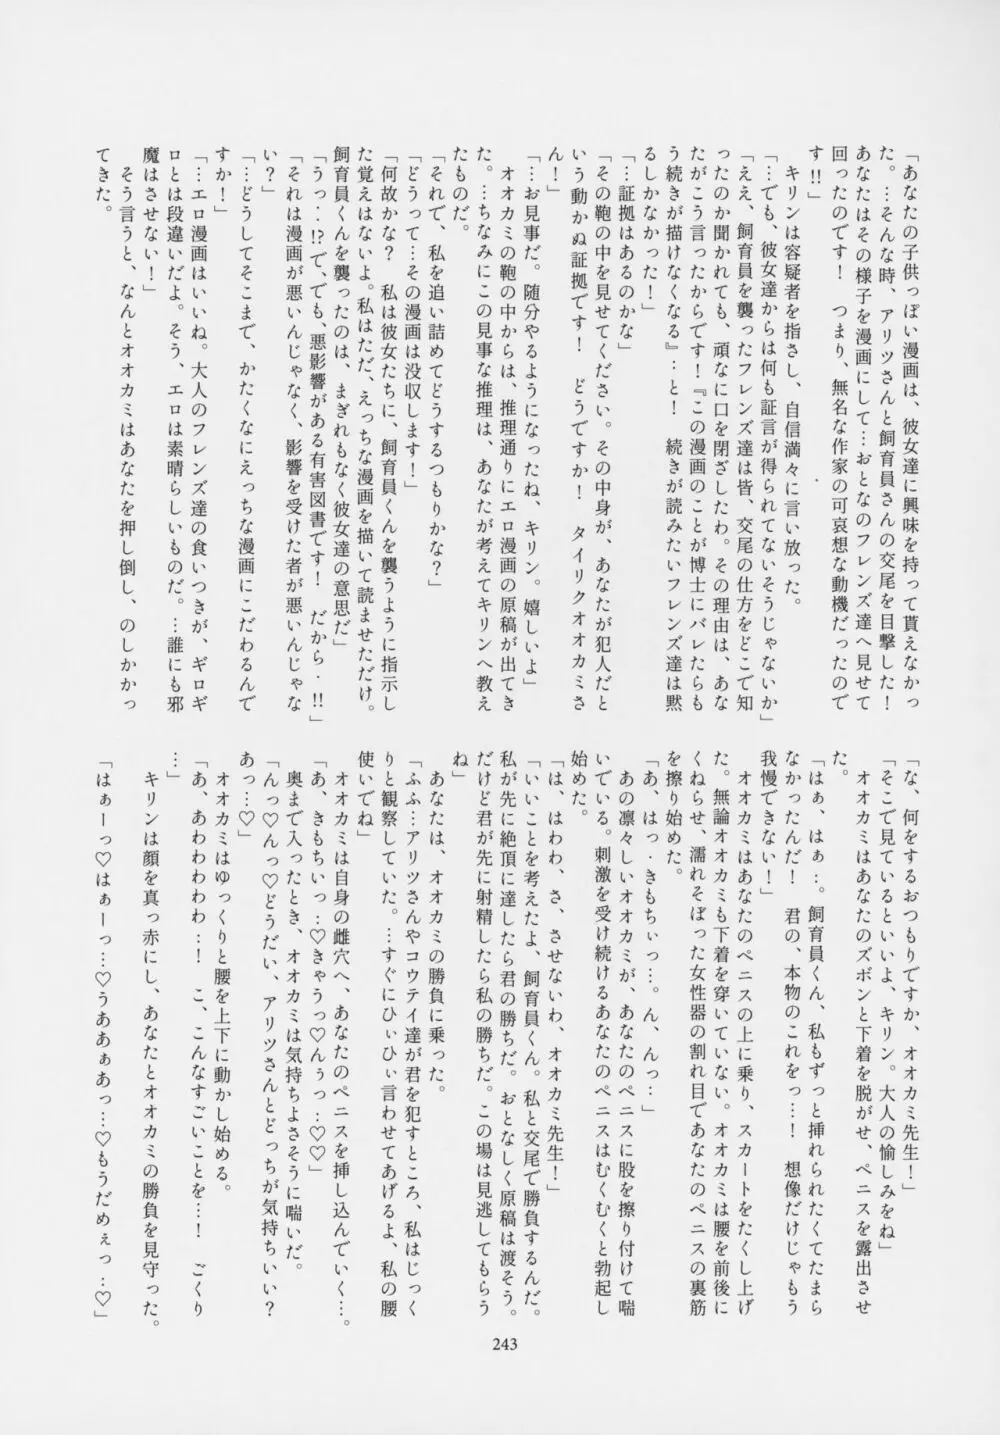 「あなたの子供っぽい漫画は、彼女達に興味を持って貰えなかっ
た。…そんな時、アリツさんと飼育員さんの交尾を目撃した！
あなたはその様子を漫画にして…おとなのフレンズ達へ見せて
回ったのです！　つまり、無名な作家の可哀想な動機だったので
す!!」
キリンは容疑者を指さし、自信満々に言い放った。
「…でも、彼女達からは何も証言が得られてないそうじゃないか」
「ええ、飼育員を襲ったフレンズ達は皆、交尾の仕方をどこで知
ったのか聞かれても、頑なに口を閉ざしたわ。その理由は、あな
たがこう言ったからです！『この漫画のことが博士にバレたらも
う続きが描けなくなる』…と！　続きが読みたいフレンズ達は黙
るしかなかった！」
「…証拠はあるのかな」
「その鞄の中を見せてください。その中身が、あなたが犯人だと
いう動かぬ証拠です！　どうですか！　タイリクオオカミさ
ん！」
「…お見事だ。随分やるようになったね、キリン。嬉しいよ」
オオカミの鞄の中からは、推理通りにエロ漫画の原稿が出てき
た。…ちなみにこの見事な推理は、あなたが考えてキリンへ教え
たものだ。
「それで、私を追い詰めてどうするつもりかな？」
「どうって…その漫画は没収します！」
「何故かな？　私は彼女たちに、飼育員くんを襲うように指示し
た覚えはないよ。私はただ、えっちな漫画を描いて読ませただけ。
飼育員くんを襲ったのは、まぎれもなく彼女達の意思だ」
「うっ…!?で、でも、悪影響がある有害図書です！　だから…!!」
「それは漫画が悪いんじゃなく、影響を受けた者が悪いんじゃな
い？」
「…どうしてそこまで、かたくなにえっちな漫画にこだわるんで
すか！」
「…エロ漫画はいいね。大人のフレンズ達の食いつきが、ギロギ
ロとは段違いだよ。そう、エロは素晴らしいものだ。…誰にも邪
魔はさせない！」
そう言うと、なんとオオカミはあなたを押し倒し、のしかかっ
てきた。
「な、何をするおつもりですか、オオカミ先生！」
「そこで見ているといいよ、キリン。大人の愉しみをね」
オオカミはあなたのズボンと下着を脱がせ、ペニスを露出させ
た。
「はぁ、はぁ…。飼育員くん、私もずっと挿れられたくてたまら
なかったんだ！　君の、本物のこれをっ…！　想像だけじゃもう
我慢できない！」
オオカミはあなたのペニスの上に乗り、スカートをたくし上げ
た。無論オオカミも下着を穿いていない。オオカミは腰を前後に
くねらせ、濡れそぼった女性器の割れ目であなたのペニスの裏筋
を擦り始めた。
「あ、はっ…きもちぃっ…。ん、んっ…」
あの凛々しいオオカミが、あなたのペニスに股を擦り付けて喘
いでいる。刺激を受け続けるあなたのペニスはむくむくと勃起し
始めた。
「は、はわわ、さ、させないわ、オオカミ先生！」
「いいことを考えたよ、飼育員くん。私と交尾で勝負するんだ。
私が先に絶頂に達したら君の勝ちだ。おとなしく原稿は渡そう。
だけど君が先に射精したら私の勝ちだ。この場は見逃してもらう
ね」
あなたは、オオカミの勝負に乗った。
「ふふ…アリツさんやコウテイ達が君を犯すところ、私はじっく
りと観察していた。…すぐにひぃひぃ言わせてあげるよ、私の腰
使いでね」
オオカミは自身の雌穴へ、あなたのペニスを挿し込んでいく…。
「あ、きもちいっ…♡きゃうっ♡んぅっ…♡♡」
奥まで入ったとき、オオカミは気持ちよさそうに喘いだ。
「んっ♡んっっ♡どうだい、アリツさんとどっちが気持ちいい？
あっ…♡」
オオカミはゆっくりと腰を上下に動かし始める。
「あ、あわわわわわ…！　こ、こんなすごいことを…！　ごくり
…」
キリンは顔を真っ赤にし、あなたとオオカミの勝負を見守った。
「はぁーっ♡はぁーっ…♡うああぁあっ…♡もうだめぇっ…♡」
243